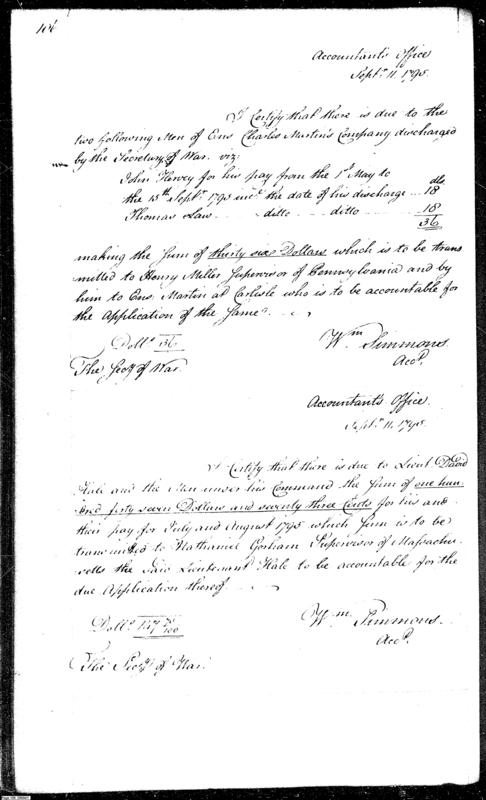 106
Accountant's Office
Septr. 11. 1795.
I Certify that there is due to the
two following Men of Ens Charles Martin's Company discharged
by the Secretary of War. viz:
dlls
John Hervey for his pay from the 1st May to
the 15th Septr. 1795 incl. the date of his discharge ... 18
Thomas Law ... ditto ... ditto ... 18
36
making the Sum of thirty six Dollars which is to be trans
mitted to Henry Miller Supervisor of Pennsylvania and by
him to Ens. Martin at Carlisle who is to be accountable for
the Application of the Same.
Dolls. 36
Wm Simmons
Acct.
The Secy of War.
Accountant's Office.
Septr. 11. 1795.
I Certify that there is due to Lieut David
Hale and the Men under his Command the Sum of one hun
dred forty seven Dollars and seventy three Cents for his and
their pay for July and August 1795 which Sum is to be
transmitted to Nathaniel Gorham Supervisor of Massachu
setts the said Lieutenant Hale to be accountable for the
due Application thereof
Dolls. 147 73/100
Wm. Simmons.
Acct.
The Secy of War.